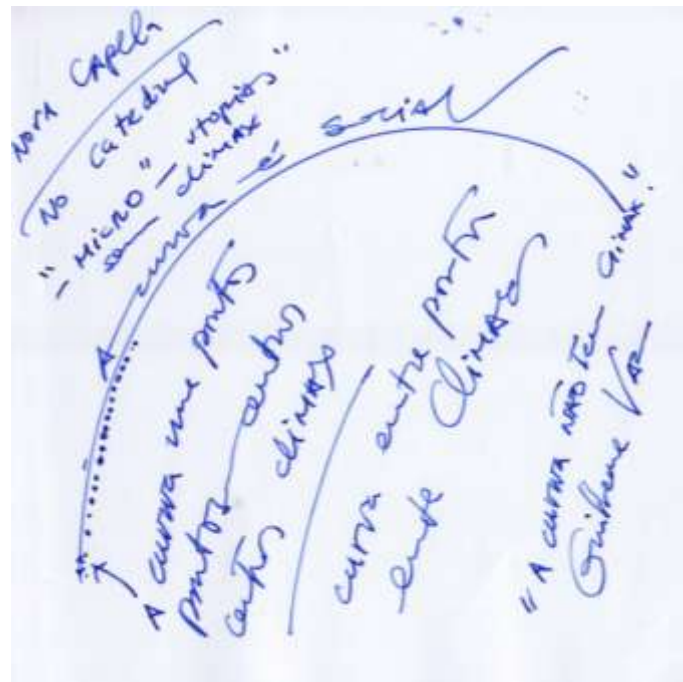 NOVA CAPELA
No Catedral
- "MICRO" - utopias"
sem climax
A curva é social
A curva une pontos
pontos centros
centros climax
curva entre pontos
entre CliMAX
"A CURVA NÃO Tem CliMAX."
Guilherme Vaz